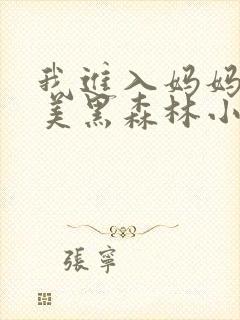 我進入妈妈
美黑森林小
張寧